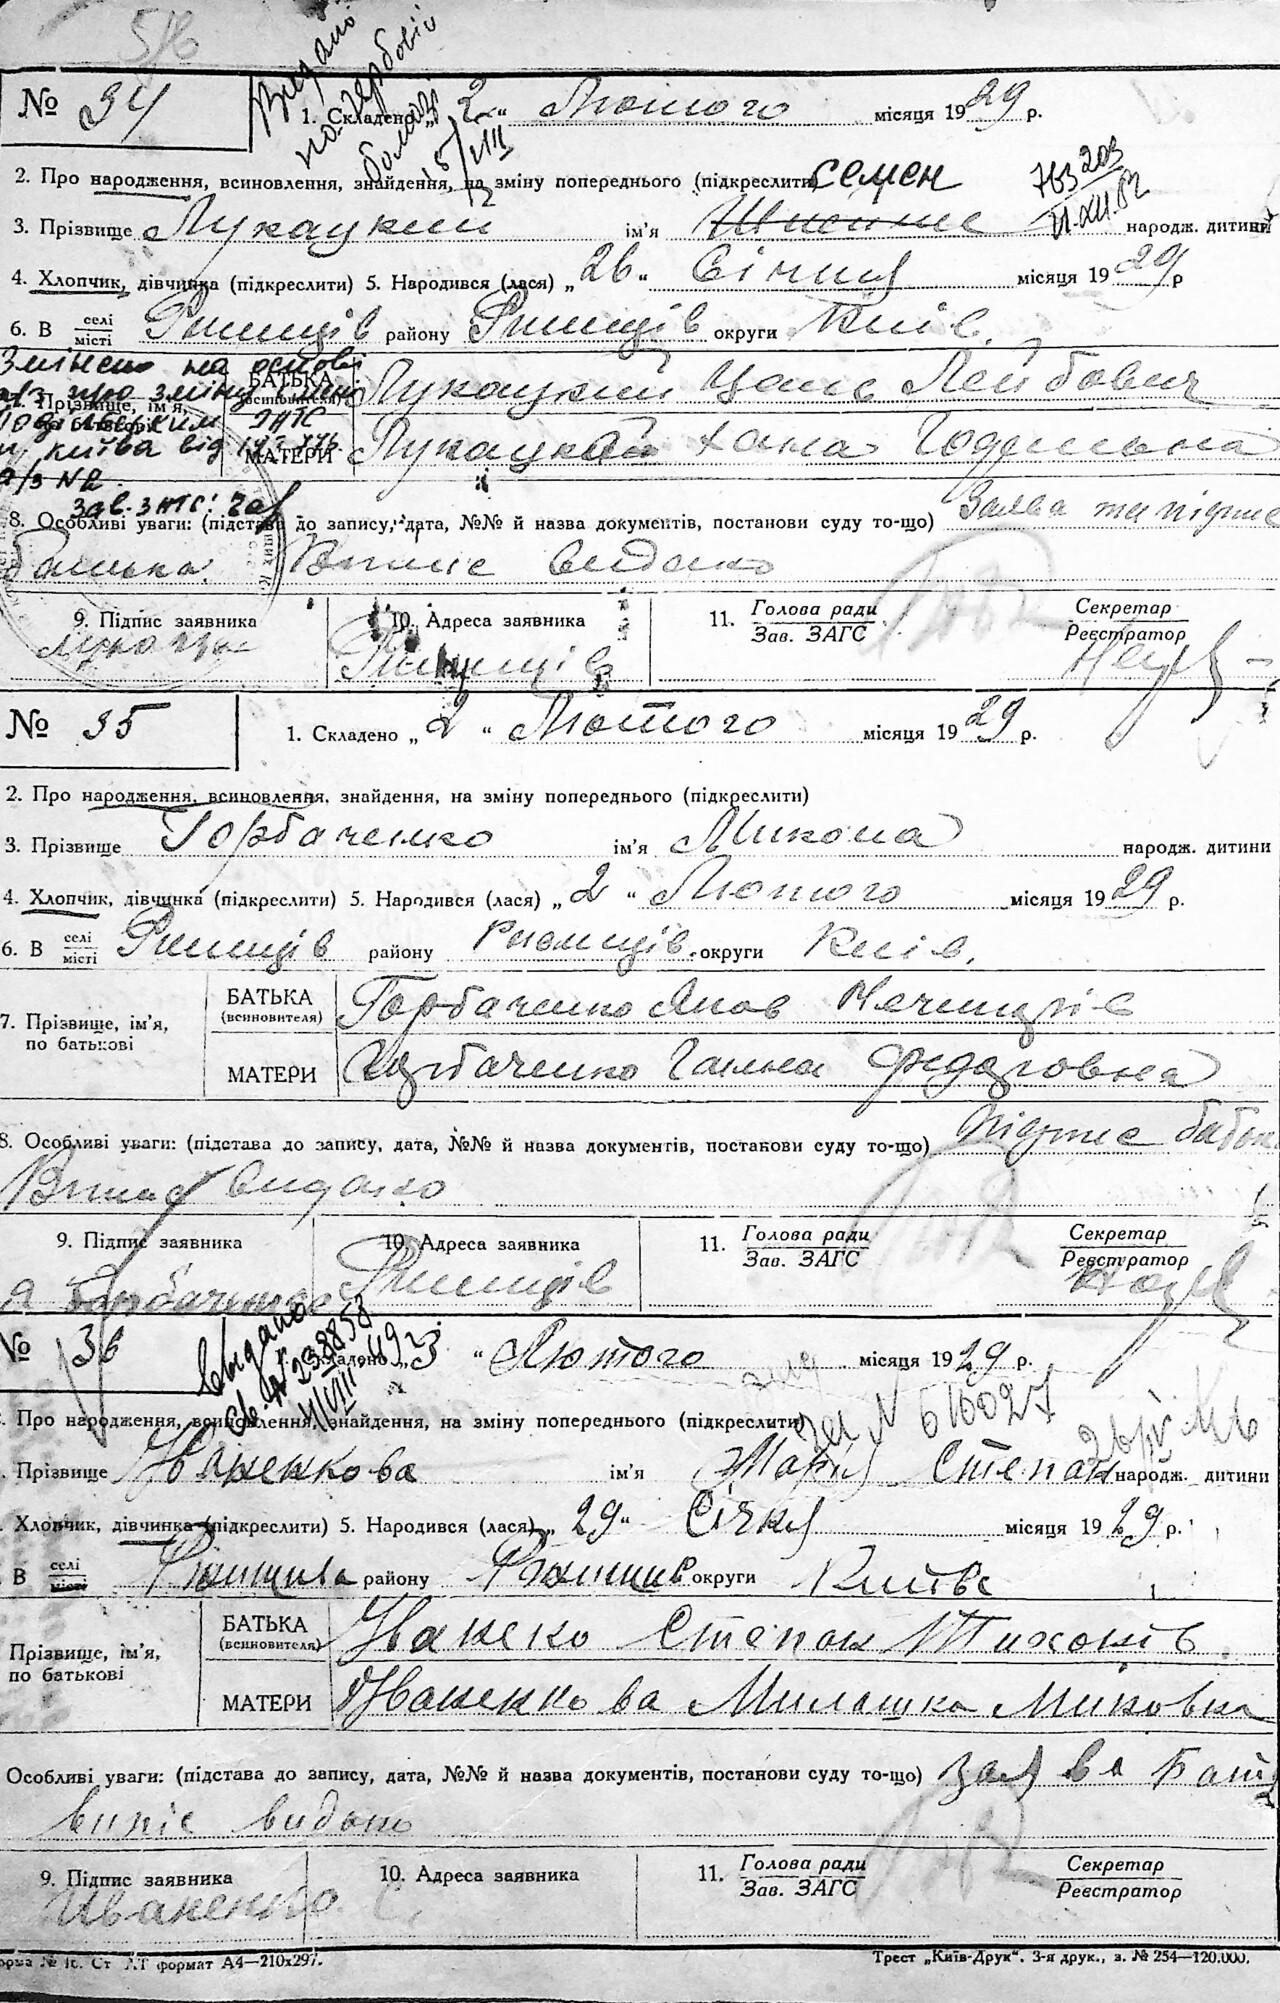 516
Видано
№ 34
1. Складено „ 2 “ Лютого місяця 1929 р.
2. Про народження, всиновлення, знайдення, на зміну попереднього (підкреслити) семен
3. Прізвище Лукацкий ім'я народж. дитини
4. Хлопчик, дівчинка (підкреслити) 5. Народився (лася) „ 26 “ Січня місяця 1929 р
6. В селі місті Ржищів району Ржищів округи Київ.
Змінено на основі
а/з про зміну імені
Київа від
а/з №
Зав. ЗАГС:
7. Прізвище, ім'я, по батькові
БАТЬКА (всиновителя) Лукацкий Лейбович
МАТЕРИ Лукацкая Хана Годельовна
8. Особливі уваги: (підстава до запису, дата, №№ й назва документів, постанови суду то-що) Заява та підпис
батька. Випис видано
9. Підпис заявника
10. Адреса заявника
Ржищів
11. Голова ради
Зав. ЗАГС
Секретар
Реєстратор
№ 35
1. Складено „ 2 “ Лютого місяця 1929 р.
2. Про народження, всиновлення, знайдення, на зміну попереднього (підкреслити)
3. Прізвище Горбаченко ім'я Микола народж. дитини
4. Хлопчик, дівчинка (підкреслити) 5. Народився (лася) „ 2 “ Лютого місяця 1929 р.
6. В селі місті Ржищів району Ржищів округи Київ.
7. Прізвище, ім'я, по батькові
БАТЬКА (всиновителя) Горбаченко Яков
МАТЕРИ Горбаченко Ганна Федоровна
8. Особливі уваги: (підстава до запису, дата, №№ й назва документів, постанови суду то-що) Підпис батьк
Випис видано
9. Підпис заявника
Горбаченко
10. Адреса заявника
Ржищів
11. Голова ради
Зав. ЗАГС
Секретар
Реєстратор
№ 36
Складено „ 3 “ Лютого місяця 1929 р.
Выдано
св. № 238858
Про народження, всиновлення, знайдення, на зміну попереднього (підкреслити)
№ 616027
Прізвище Іваненкова ім'я Марія Степан народж. дитини
Хлопчик, дівчинка (підкреслити) 5. Народився (лася) „ 29 “ Січня місяця 1929 р.
В селі місті району округи Київс
Прізвище, ім'я, по батькові
БАТЬКА (всиновителя) Іванеко Степан Тихонів
МАТЕРИ Іваненкова Милашка
Особливі уваги: (підстава до запису, дата, №№ й назва документів, постанови суду то-що) заява Бат
випіс видано
9. Підпис заявника
Иваненко. С,
10. Адреса заявника
11. Голова ради
Зав. ЗАГС
Секретар
Реєстратор
формат А4—210х297.
Трест „Київ-Друк“. 3-я друк., з. № 254—120.000.